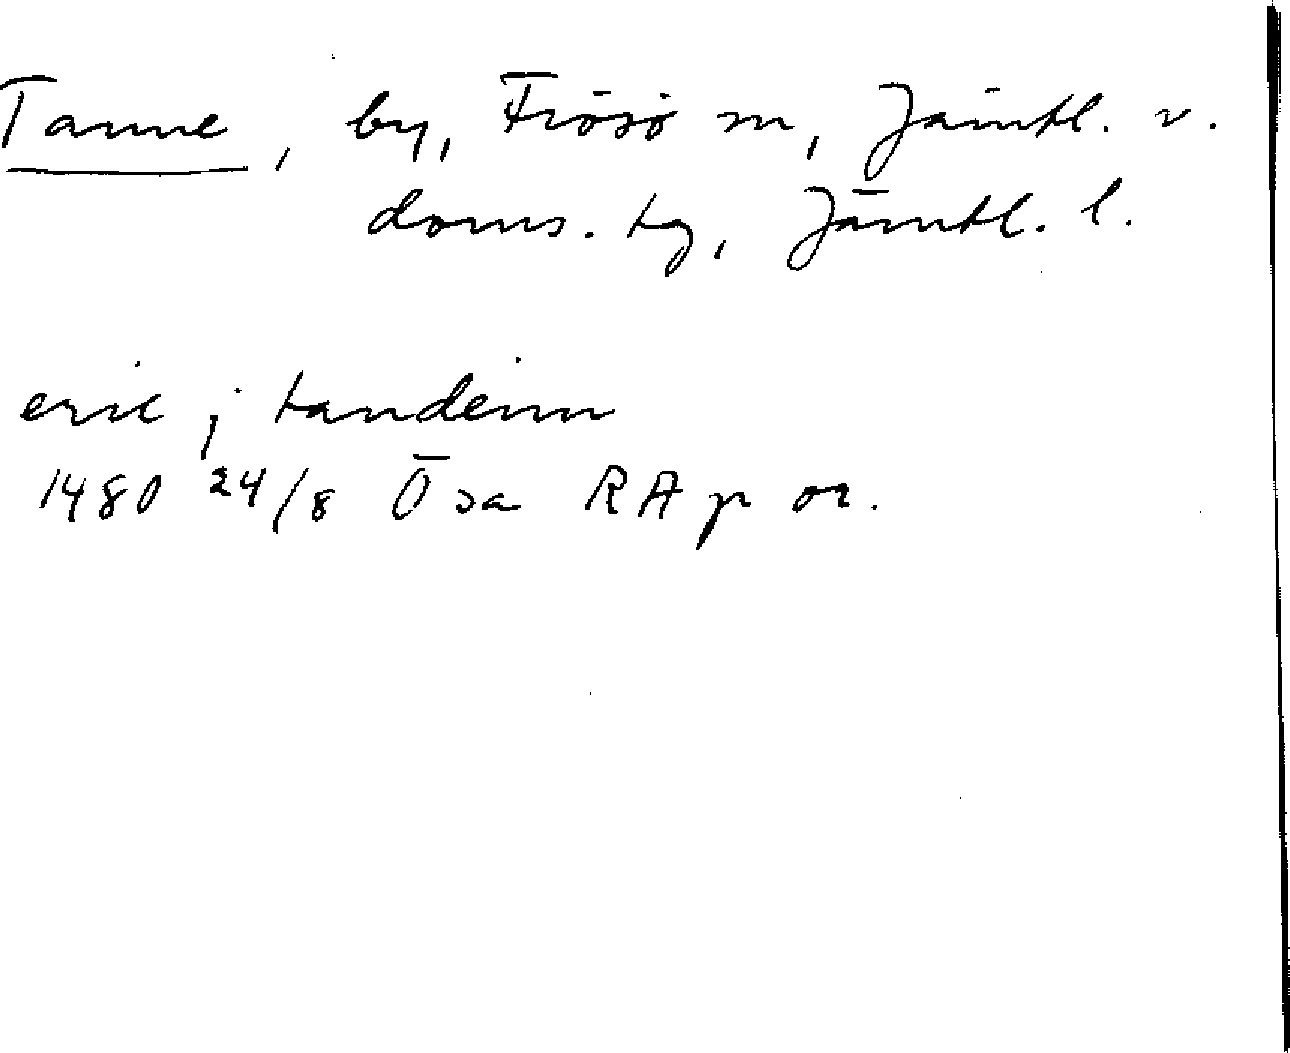 Tanne, by, Frösö sn, Jämtl. v.
doms. tg, Jämtl. l.
eric j tandenm
1480 24/8 Ösa RAp or.